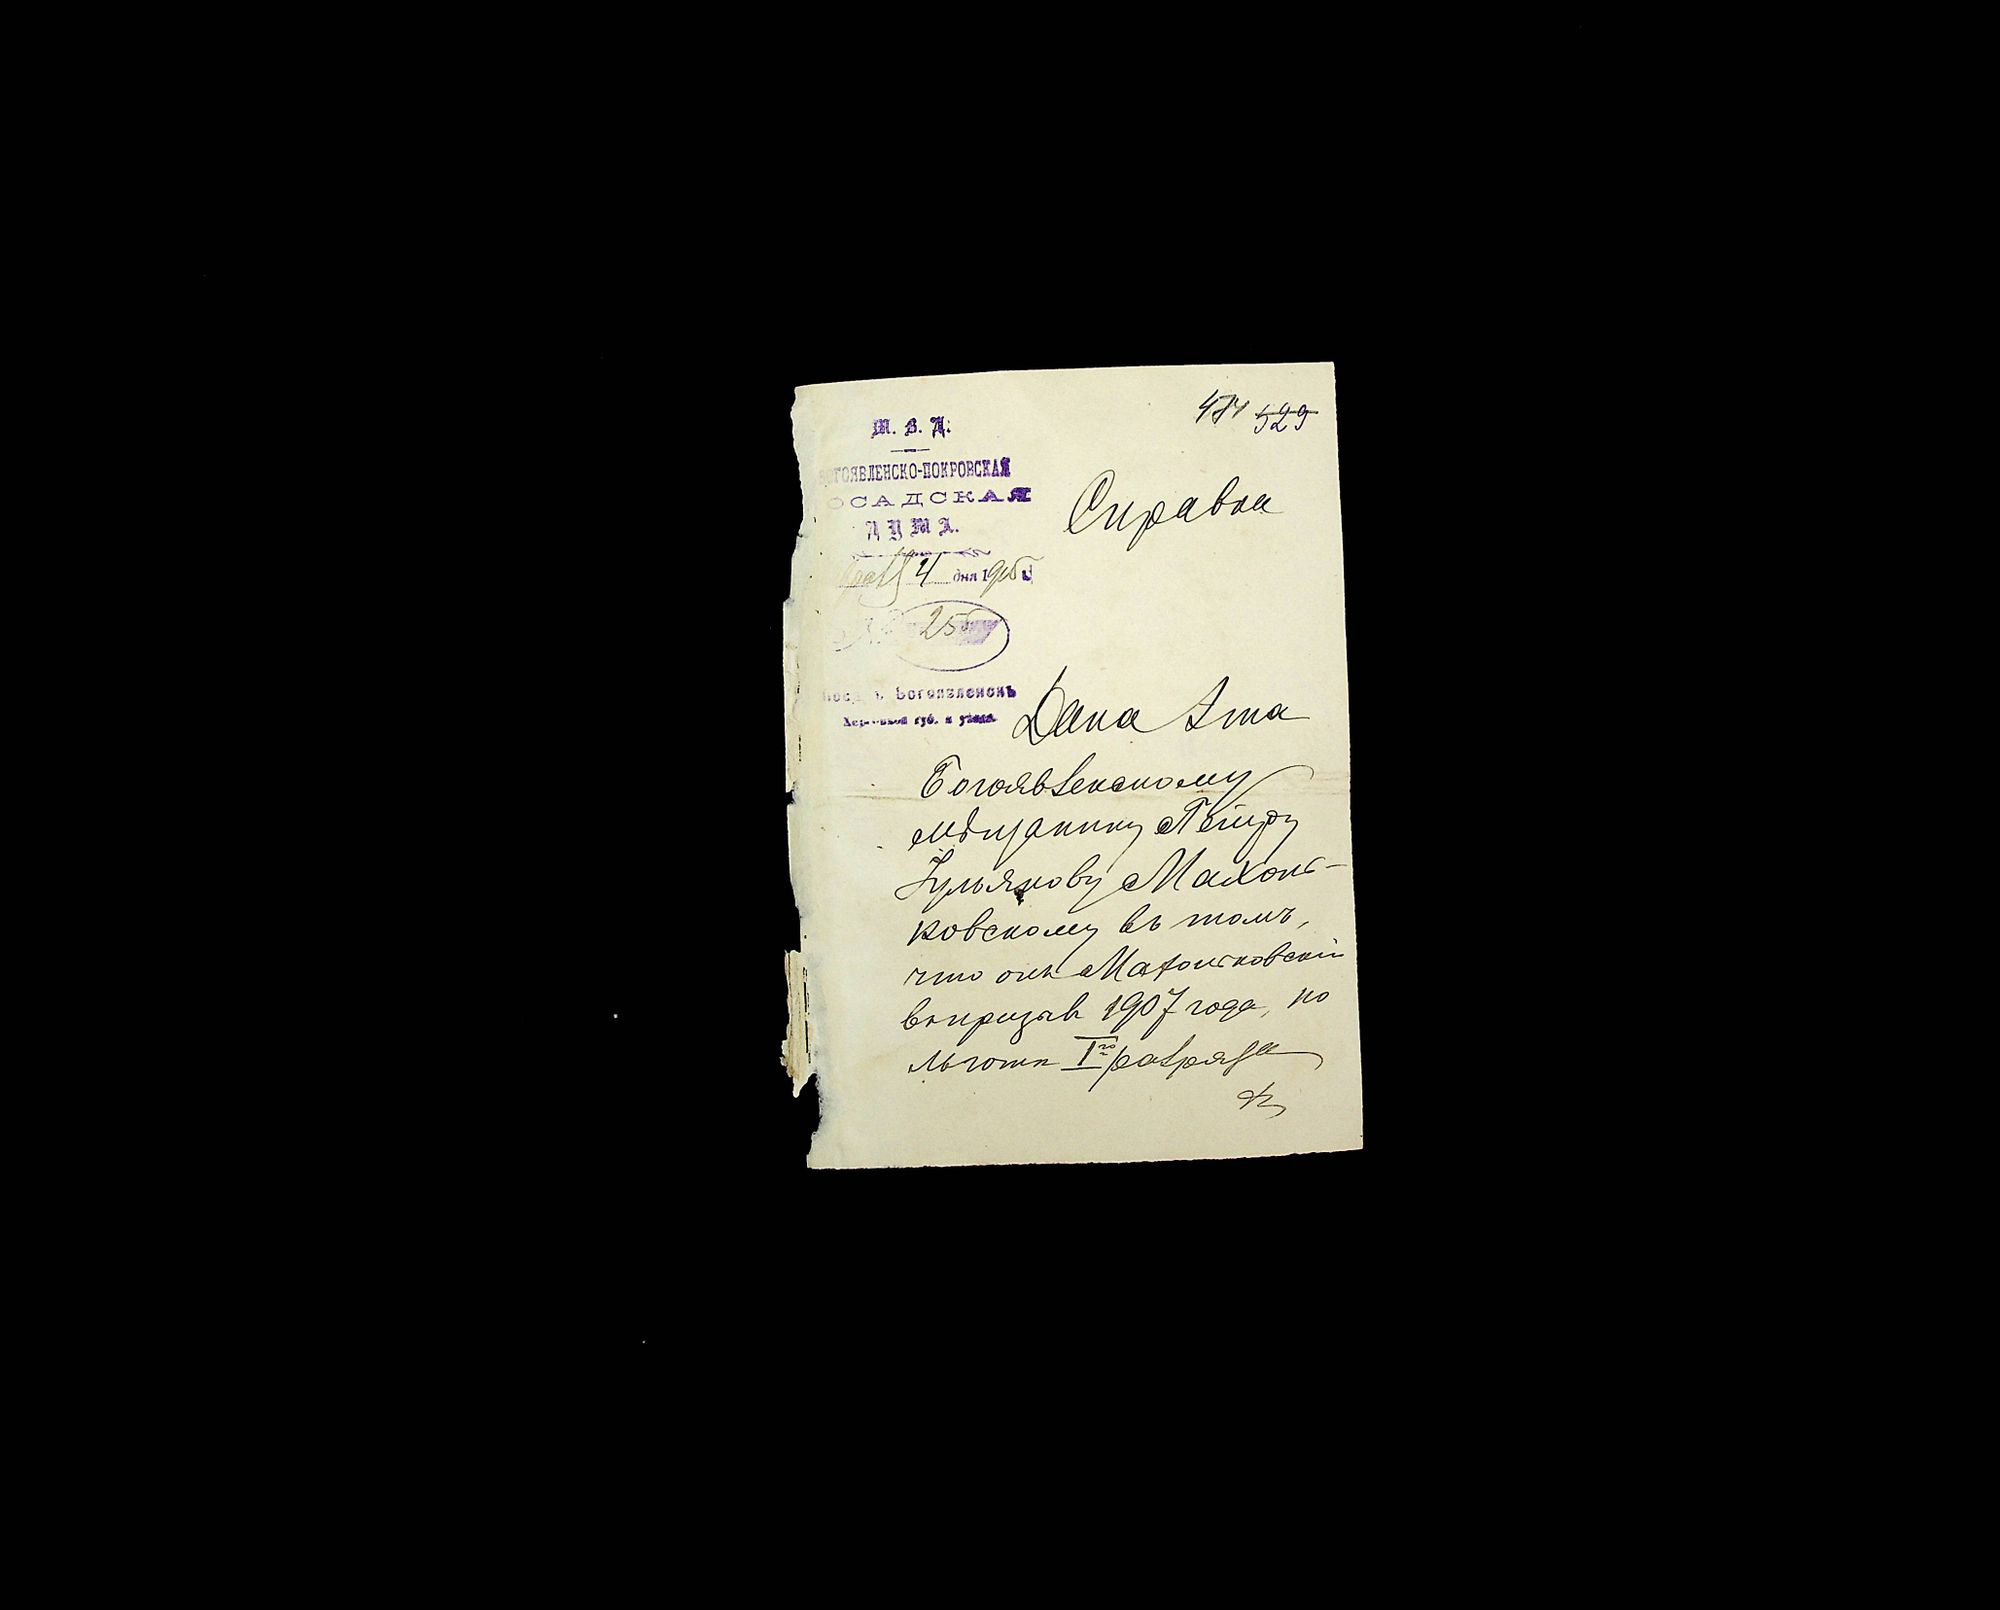 474 529
М. В. Д.
БОГОЯВЛЕНСКО-ПОКРОВСКАЯ
ПОСАДСКАЯ
ДУМА.
4 дня 191
№ 255
Посадъ Богоявленскъ
Херсонской губ. и уѣзда.
Справка
Дана эта
Богоявленскому
мѣщанину Петру
Ульянову Махонь-
ковскому въ томъ,
что онъ Махоньковскій
въ призывѣ 1907 года, по
льготѣ I го разряда